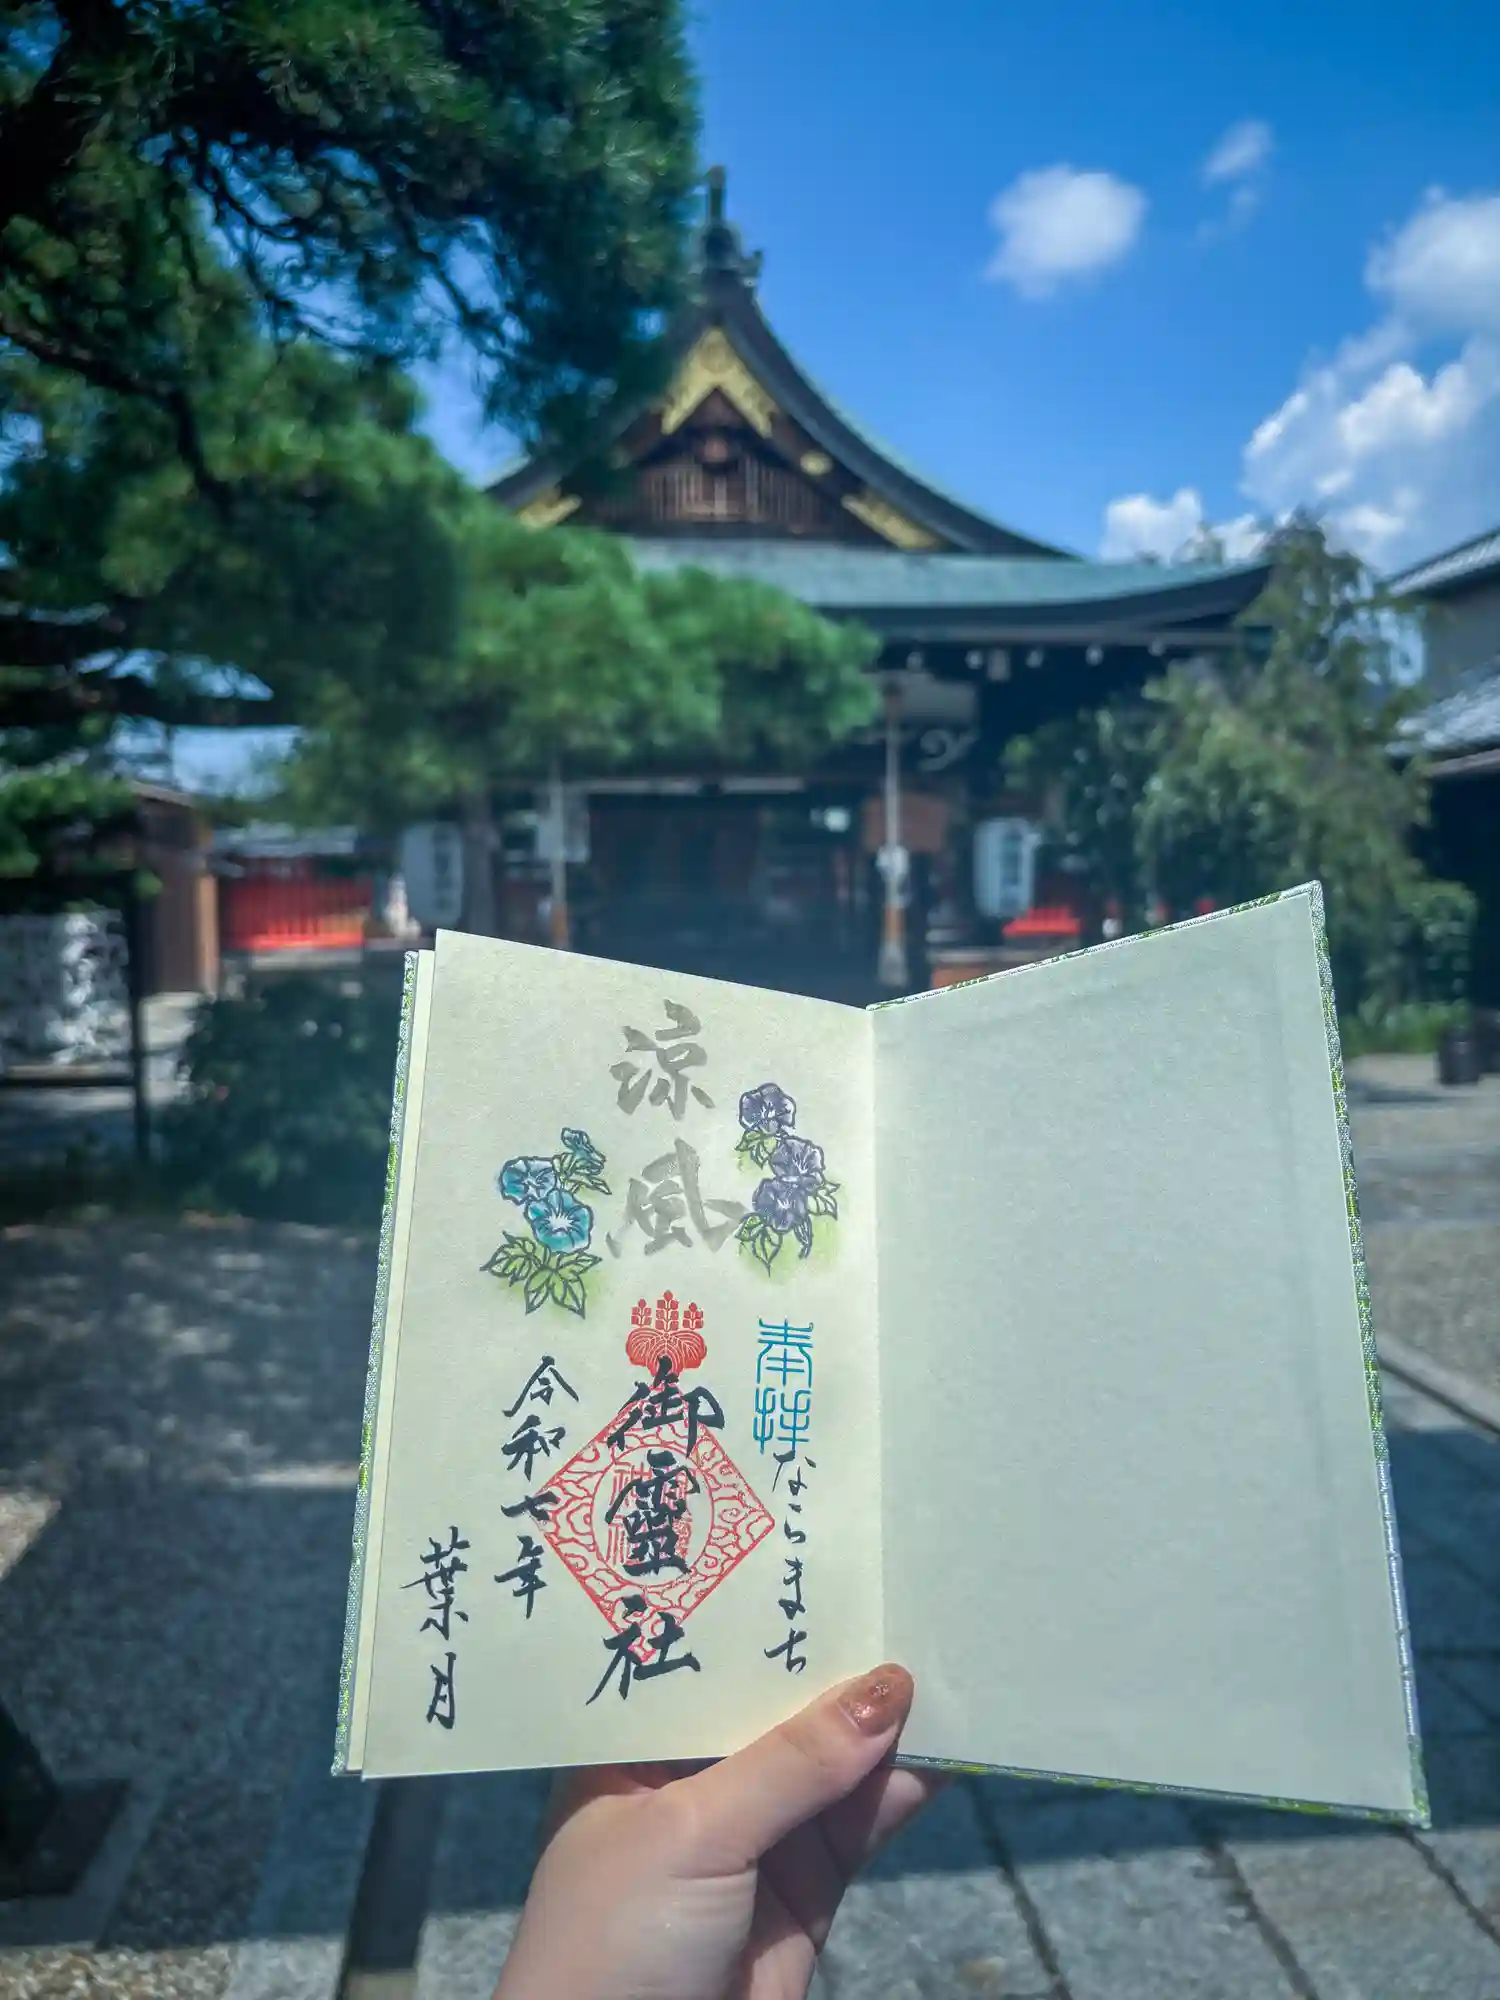 奉拝
ならまち
涼風
御霊社
令和七年
葉月